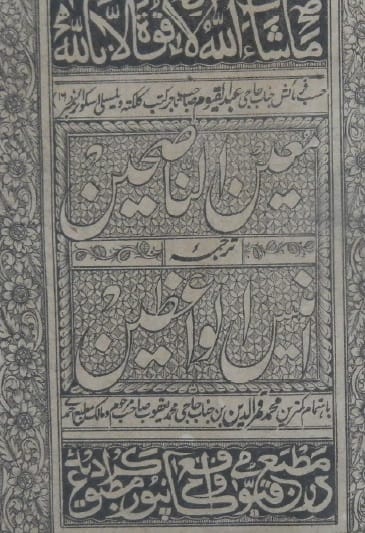 ماشاء اللہ لا قوۃ الا باللہ
حسب فرمائش جناب حاجی عبدالقیوم صاحب تاجر کتب کلکتہ ویلسلی اسکوائر نمبر ۱۶
معین الناصحین
ترجمہ
انیس الواعظین
باہتمام کمترین محمد قمرالدین بن جناب حاجی محمد یعقوب صاحب مرحوم ومالک مطبع احمدی
مطبع قیومی واقع کانپور مطبوع